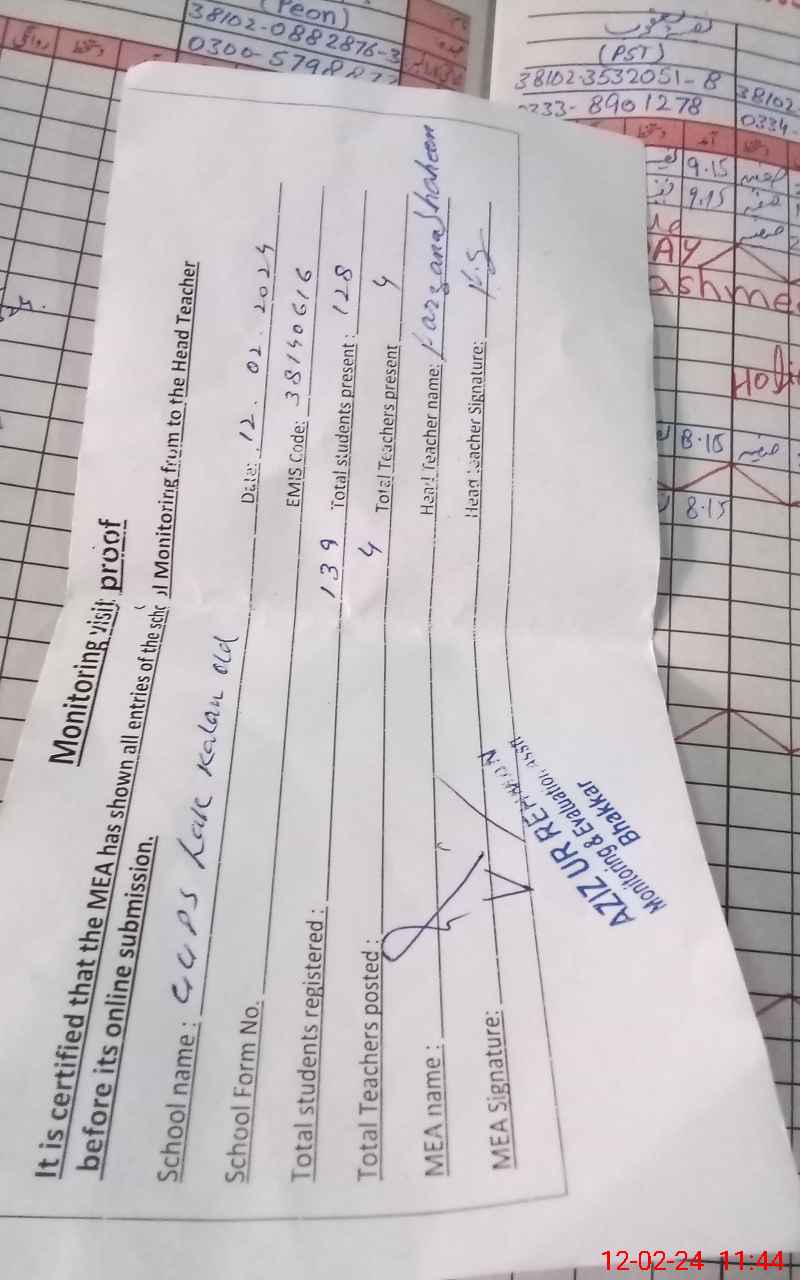 (Peon)
38102-0882876-3
0300-5798872
(PST)
38102-3532051-8
0333-8901278
38102
0334-
9.15
9.15
AY
ashme
HOli
8.15
8.15
Monitoring visit proof
It is certified that the MEA has shown all entries of the school Monitoring from to the Head Teacher
before its online submission.
School name: GGPS Lak Kalan old Date: 12.02.2024
School Form No. EMIS Code: 38140616
Total students registered: 139 Total students present: 128
Total Teachers posted: 4 Total Teachers present 4
MEA name: Head Teacher name: Farzana Shaheen
MEA Signature: Head Teacher Signature: F.S
AZIZ UR REHMAN
Monitoring & Evaluation Asstt
Bhakkar
12-02-24 11:44